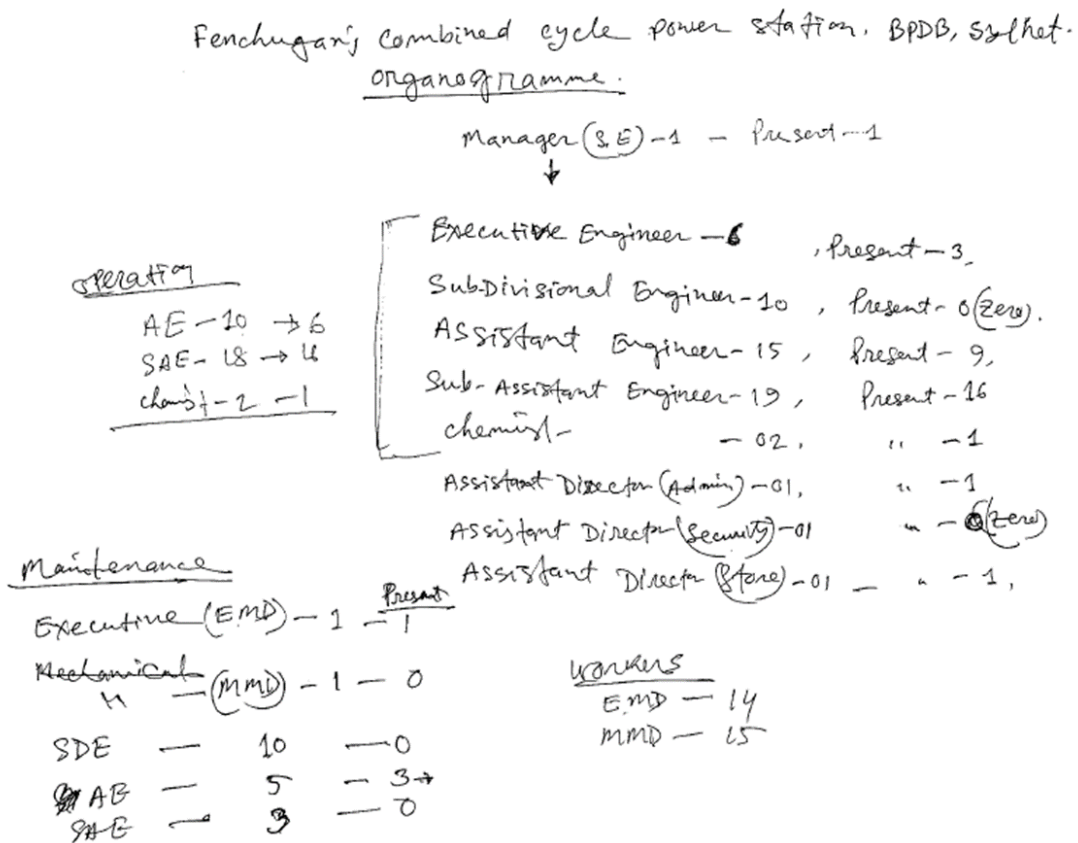 Fenchuganj Combined cycle power station, BPDB, Sylhet.
organogramme.
Manager (S.E) - 1 - Present - 1
Executive Engineer - 6 , Present - 3,
Sub-Divisional Engineer - 10 , Present - 0 (Zero).
Assistant Engineer - 15 , Present - 9,
Sub-Assistant Engineer - 19 , Present - 16
chemist - - 02, " - 1
Assistant Director (Admin) - 01, " - 1
Assistant Director (Security) - 01 " - 0 (Zero)
Assistant Director (Store) - 01 - " - 1,
operation
AE - 10 → 6
SAE - 18 →
chemist - 2 - 1
Maintenance
Present
Executive (EMD) - 1 - 1
" - (MMD) - 1 - 0
SDE - 10 - 0
AE - 5 - 3 →
SAE - 3 - 0
Workers
EMD - 14
MMD - 15